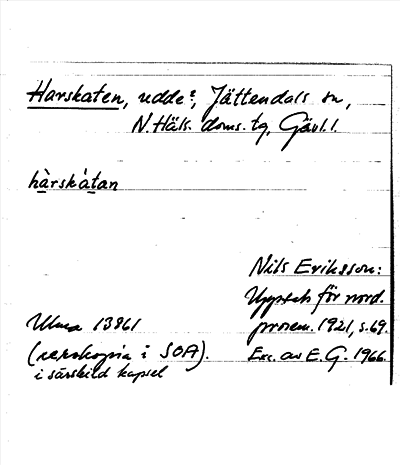 Harskaten, udde?, Jättendals sn,
N. Häls. doms. tg, Gävl. l.
hàrskátan
Nils Eriksson:
Uppsats för nord.
prosem. 1921, s. 69.
Exc. av E. G. 1966.
Ulma 13861
(xerokopia i SOA).
i särskild kapsel